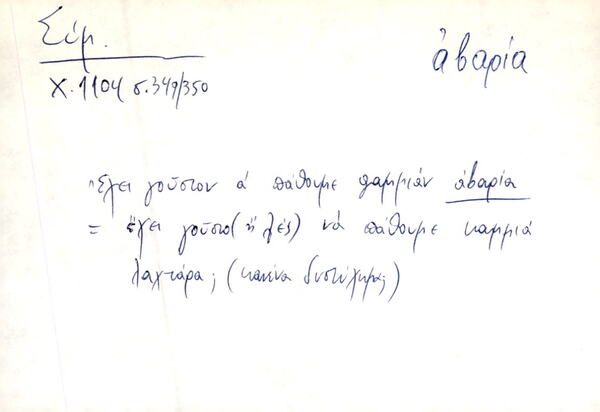 Σύμ.
ἀβαρία
Χ. 1104 σ. 349/350
Ἔχει γοῦστον ἁ πάθουμε καμμιὰν ἀβαρία
= ἔχει γοῦστο (ἢ λές) νὰ πάθουμε καμμιὰ
λαχτάρα; (κανένα δυστύχημα;)